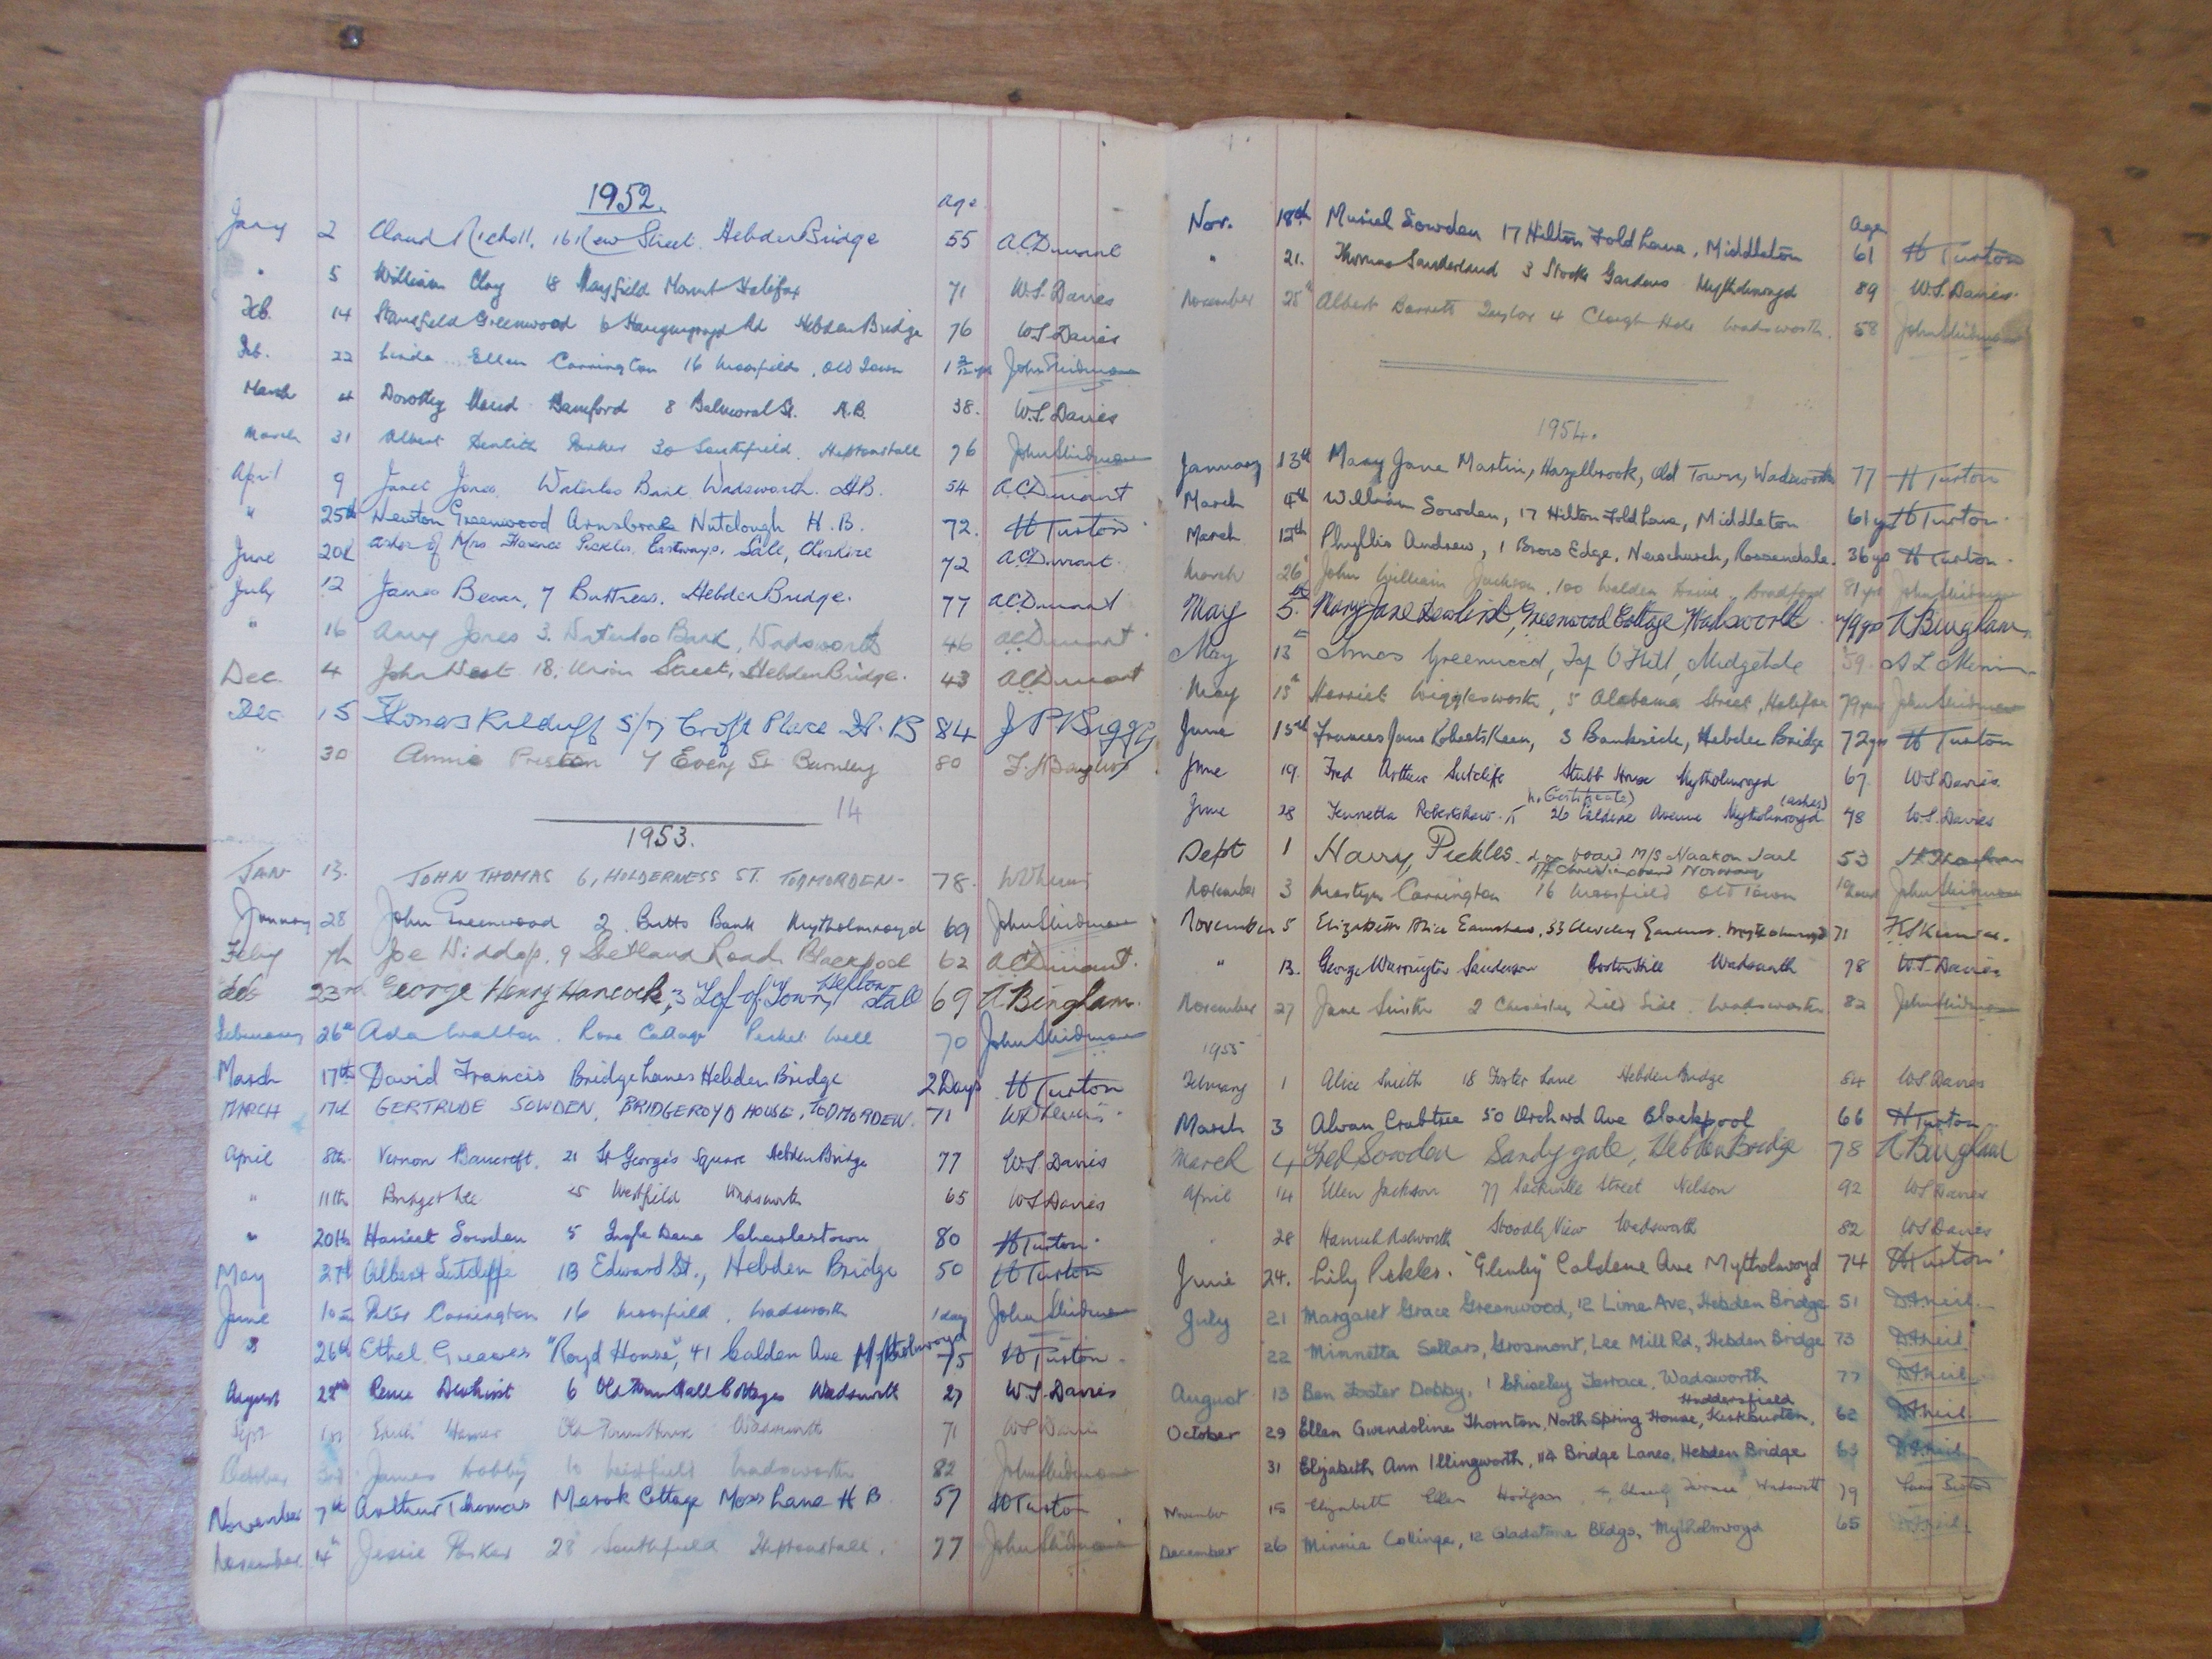 1952.
Age
Jany 2 Claud Nicholl, 16 New Street, Hebden Bridge 55 A.C. Durrant
" 5 William Clay 18 Mayfield Mount Halifax 71 W.S. Davies
Feb. 14 Stansfield Greenwood 6 Rd Hebden Bridge 76 W.S. Davies
Feb. 22 Linda Ellen Carrington 16 Moorfields, Old Town John Skidmore
March 4 Dorothy Maud Bamford 8 Balmoral St. H.B. 38. W.S. Davies
March 31 Albert Parker 30 Southfield, Heptonstall 76 John Skidmore
April 9 Janet Jones, Waterloo Bank, Wadsworth. H.B. 54 A.C. Durrant
" 25th Newton Greenwood Nutclough H.B. 72. H Turton
June 20th Ashes of Mrs Florence Pickles, Eastways, Sale, Cheshire 72 A.C. Durrant
July 12 James Bevan, 7 Buttress, Hebden Bridge. 77 A.C. Durrant
" 16 Amy Jones 3. Waterloo Bank, Wadsworth 46 A.C. Durrant
Dec. 4 John West 18, Union Street, Hebden Bridge. 43 A.C. Durrant
Dec 15 Thomas Kilduff 5/7 Croft Place H.B 84 J P Briggs
" 30 Annie Preston 7 Every St Burnley 80
14
1953.
JAN 13. JOHN THOMAS 6, HOLDERNESS ST. TODMORDEN- 78.
January 28 John Greenwood 2, Butts Bank Mytholmroyd 69 John Skidmore
Feby 7th Joe Widdop, 9 Shetland Road, Blackpool 62 A.C. Durrant.
Feb 23rd George Henry Hancock, 3 Top of Town, Heptonstall 69 A Bingham.
February 26th Ada Walton. Rose Cottage Pecket Well 70 John Skidmore
March 17th David Francis Bridge Lanes Hebden Bridge 2 Days H Turton
MARCH 17th GERTRUDE SOWDEN, BRIDGEROYD HOUSE, TODMORDEN. 71
April 8th Vernon Bancroft, 21 St George's Square Hebden Bridge 77 W.S. Davies
" 11th Bridget 25 Westfield Wadsworth 65 W.S. Davies
" 20th Harriet Sowden 5 Ingle Dene Charlestown 80 H Turton
May 27th Albert Sutcliffe 1B Edward St., Hebden Bridge 50 H Turton
June 10th Peter Carrington 16 Moorfield, Wadsworth 1 day John Skidmore
" 26th Ethel Greaves "Royd House", 41 Calden Ave Mytholmroyd 75 H Turton.
August 22nd Dewhirst 6 Old Town Hall Cottages Wadsworth 27 W.S. Davies
Sept Old Town House Wadsworth 71 W.S. Davies
October 3rd James Dobby 10 Westfield Wadsworth 82 John Skidmore
November 7th Arthur Thomas Cottage Moss Lane H B. 57 H Turton
November 14th Jessie Parker 28 Southfield Heptonstall. 77 John Skidmore
Age
Nov. 18th Muriel Sowden 17 Hilton Fold Lane, Middleton 61 H Turton
" 21. Thomas Sunderland 3 Stocks Gardens Mytholmroyd 89 W.S. Davies.
November 25th Albert Barrett Taylor 4 Clough Hole Wadsworth. 58 John Skidmore
1954.
January 13th Mary Jane Martin, Hazelbrook, Old Town, Wadsworth 77 H Turton
March 4th William Sowden, 17 Hilton Fold Lane, Middleton 61 yrs H Turton.
March 12th Phyllis Andrew, 1 Brow Edge, Newchurch, Rossendale. 36 yrs H Turton.
March 26 John William Jackson, 100 Drive, Bradford 81 yrs John Skidmore
May 5th Mary Jane Dewhirst, Greenwood Cottage, Wadsworth 79 yrs A Bingham.
May 13 Amos Greenwood, Top O'Hill, Midgehole 59.
May 15th Harriet Wigglesworth, 5 Alabama Street, Halifax 79 yrs John Skidmore
June 15th Frances Jane Roberts Keen, 3 Bankside, Hebden Bridge 72 yrs H Turton
June 19. Fred Arthur Sutcliffe Stubb House Mytholmroyd 67. W.S. Davies.
June 28 Robertshaw. (no Certificate) 26 Caldene Avenue Mytholmroyd (ashes) 78 W.S. Davies
Sept 1 Harry Pickles d. on board M/S Haakon Jarl 53
off Norway
November 3 Martyn Carrington 16 Moorfield Old Town John Skidmore
November 5 Elizabeth Alice Earnshaw, 53 Gardens, Mytholmroyd 71
" 13. George Warrington Sanderson Boston Hill Wadsworth 78 W.S. Davies
November 27 Jane Smith 2 Side, Wadsworth 82 John Skidmore
1955
February 1 Alice Smith 18 Foster Lane Hebden Bridge 84 W.S. Davies
March 3 Alvan Crabtree 50 Orchard Ave Blackpool 66 H Turton
March 4 Fred Sowden Sandy gate, Hebden Bridge 78 A Bingham
April 14 Ellen Jackson 77 Sackville Street Nelson 92 W.S. Davies
28 Hannah Ashworth Stoodly View Wadsworth 82 W.S. Davies
June 24. Lily Pickles. "Glenby" Caldene Ave Mytholmroyd 74 H Turton
July 21 Margaret Grace Greenwood, 12 Lime Ave, Hebden Bridge 51 D.A. Neil.
22 Minnetta Sellars, Grosmont, Lee Mill Rd, Hebden Bridge 73 D.A. Neil.
August 13 Ben Foster Dobby, 1 Chiseley Terrace, Wadsworth 77 D.A. Neil.
Huddersfield
October 29 Ellen Gwendoline Thornton, North Spring House, Kirkburton, 62 D.A. Neil.
31 Elizabeth Ann Illingworth, 114 Bridge Lanes, Hebden Bridge 63 D.A. Neil
November 15 Elizabeth Ellen Hodgson, Terrace Wadsworth 79
December 26 Minnie Collinge, 12 Gladstone Bldgs, Mytholmroyd 65 D.A. Neil.